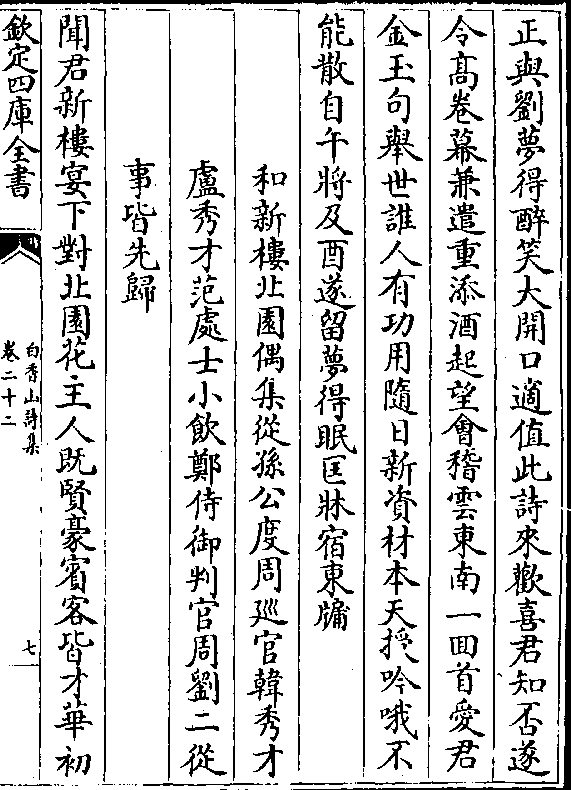 正與劉夢得醉笑大開口適值此詩來歡喜君知否遂
令髙卷幕兼遣重添酒起望會稽雲東南一回首愛君
金玉句舉世誰人有功用隨日新資材本天授吟哦不
能散自午將及酉遂留夢得眠匡牀宿東牗
和新樓北園偶集從孫公度周廵官韓秀才
盧秀才范處士小飲鄭侍御判官周劉二從
事皆先歸
聞君新樓宴下對北園花主人既賢豪賓客皆才華初
欽定四庫全書
白香山詩集
卷二十二
七